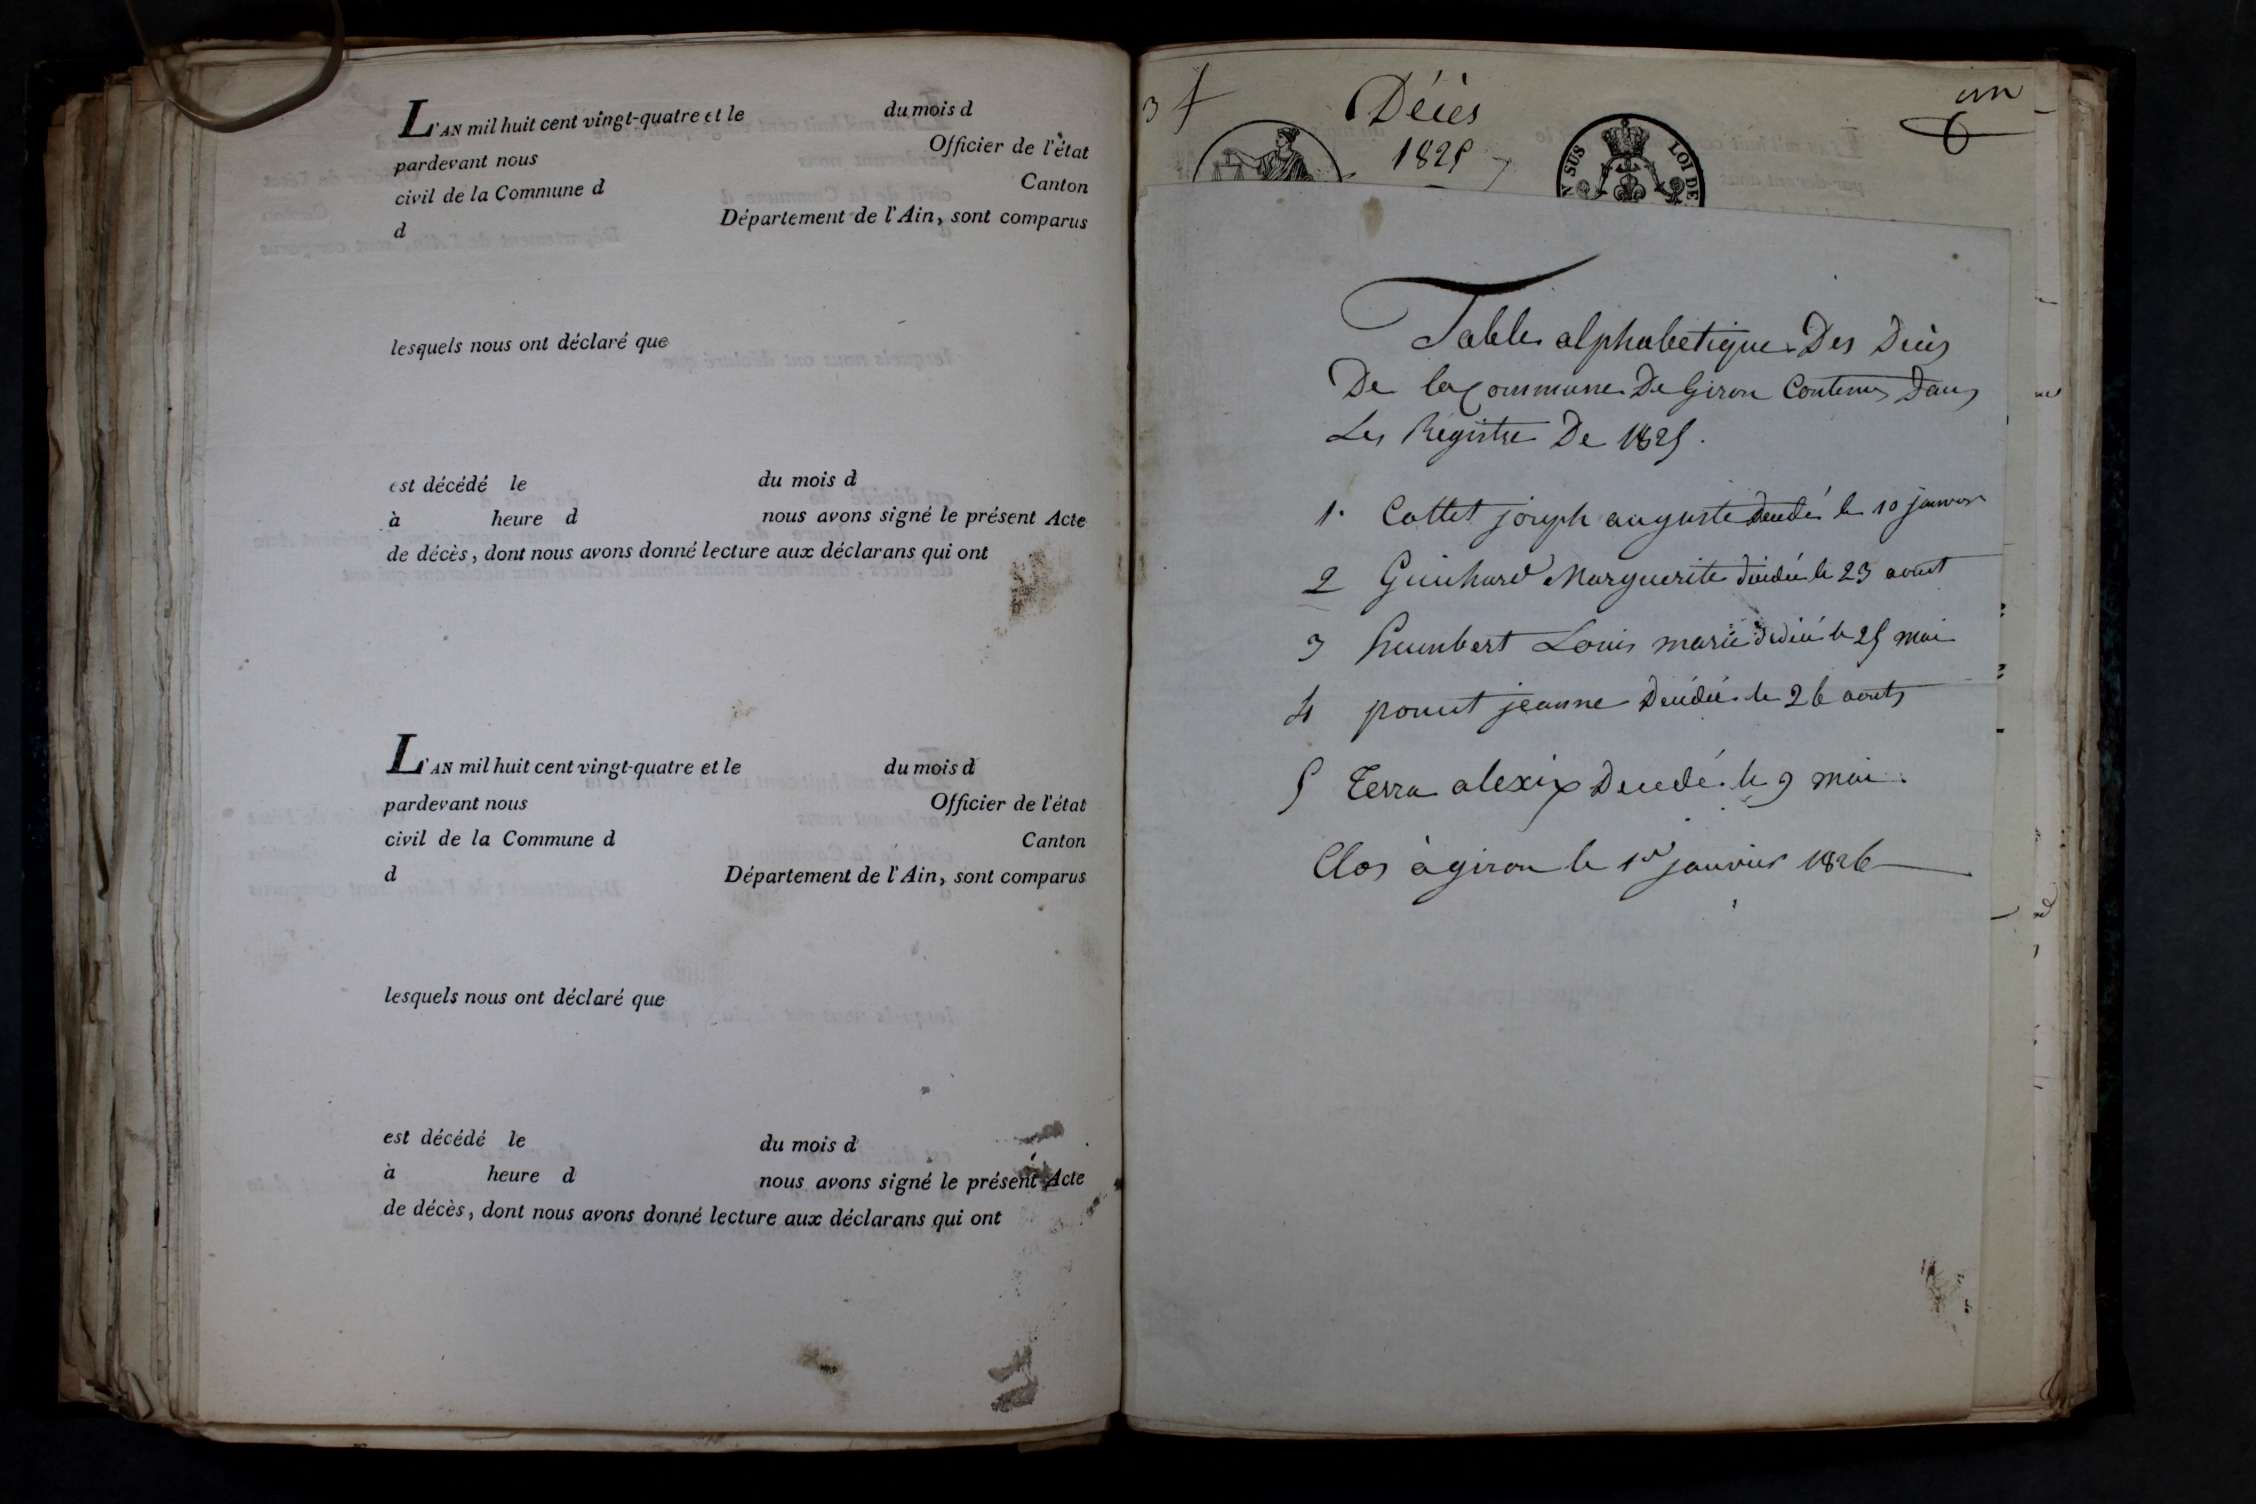 L'AN mil huit cent vingt-quatre et le du mois d
pardevant nous Officier de l'état
civil de la Commune d Canton
d Département de l'Ain, sont comparus
lesquels nous ont déclaré que
est décédé le du mois d
à heure d nous avons signé le présent Acte
de décès, dont nous avons donné lecture aux déclarans qui ont
L'AN mil huit cent vingt-quatre et le du mois d
pardevant nous Officier de l'état
civil de la Commune d Canton
d Département de l'Ain, sont comparus
lesquels nous ont déclaré que
est décédé le du mois d
à heure d nous avons signé le présent Acte
de décès, dont nous avons donné lecture aux déclarans qui ont
Décès
1825
un
N SUS LOI DE
Table alphabetique Des Décès
De la Commune De Giron Contenus Dans
Les Régistre De 1825.
1. Cottet joseph auguste Décédé le 10 janvier
2 Guichard Marguerite décédée le 23 aout
3 humbert Louis marie décédé le 25 mai
4 poncet jeanne Décédée le 26 aout
5 Terra alexix Decedé le 9 mai.
Clos à giron le 1er janvier 1826